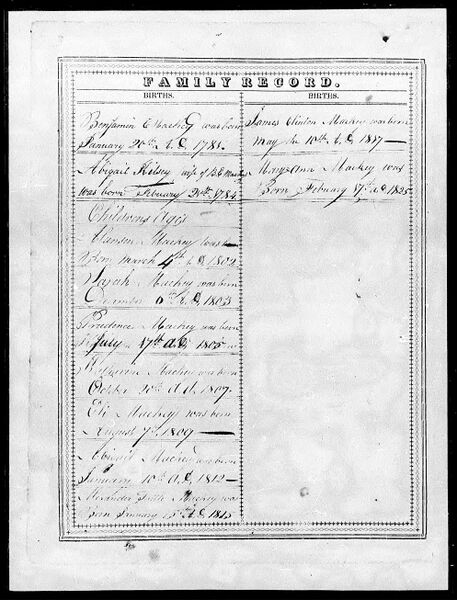 FAMILY RECORD.
BIRTHS.
Benjamin Mackey was born
January 20th A.D. 1781.
Abigail Kelsey wife of B.E. Mackey
was born February 1784
Childrens Ages
Mackey was
Born March 4th A.D. 1802
Sarah Mackey was born
December 6th A.D. 1803
Prudence Mackey was born
July 17th A.D. 1805
Mackey was born
October 20th A.d. 1807.
Eli Mackey was born
August 7th 1809
Abigail Mackey was born
January 10th A.D. 1812
Alexander Mackey was
Born January 15th A.D. 1815
BIRTHS.
James Clinton Mackey was born
May the 10th A.D. 1817
Mary Ann Mackey was
Born February 17th A.D. 1825